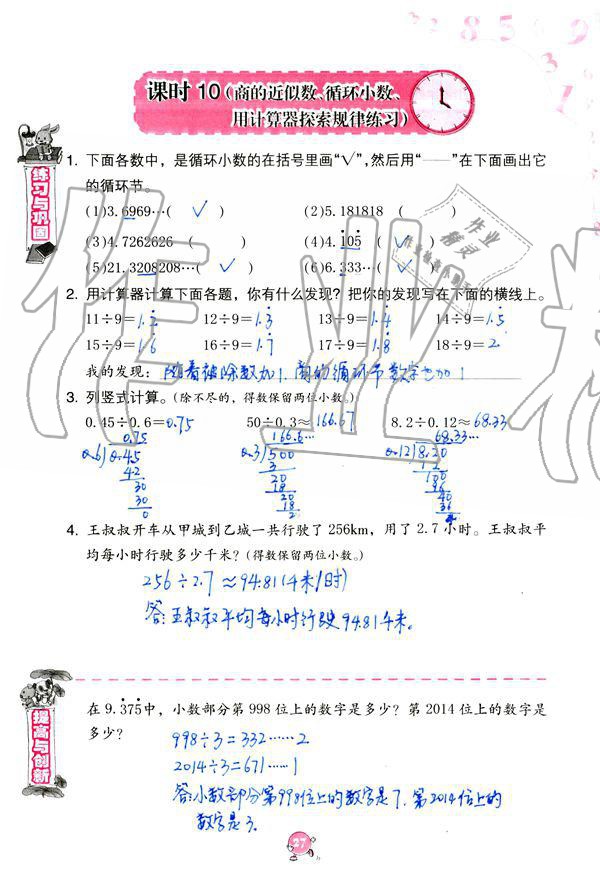 课时 10(商的近似数、循环小数、
用计算器探索规律练习)
练习与巩固
1. 下面各数中，是循环小数的在括号里画“√”，然后用“——”在下面画出它
的循环节。
(1)3.6969…( √ ) (2)5.181818 ( )
(3)4.7262626 ( ) (4)4.1̇05̇ ( √ )
(5)21.3208208…( √ ) (6)6.333…( √ )
2. 用计算器计算下面各题，你有什么发现？把你的发现写在下面的横线上。
11÷9=1.2̇ 12÷9=1.3̇ 13÷9=1.4̇ 14÷9=1.5̇
15÷9=1.6̇ 16÷9=1.7̇ 17÷9=1.8̇ 18÷9=2
我的发现：随着被除数加1，商的循环节数字也加1
3. 列竖式计算。(除不尽的，得数保留两位小数。)
0.45÷0.6=0.75 50÷0.3≈166.67 8.2÷0.12≈68.33
0.75 166.6… 68.33…
0.6)0.45 0.3)500 0.12)8.20
42 3 72
30 20 100
30 18 96
0 20 40
18 36
2 4
4. 王叔叔开车从甲城到乙城一共行驶了 256km，用了 2.7 小时。王叔叔平
均每小时行驶多少千米？(得数保留两位小数。)
256÷2.7≈94.81(千米/时)
答:王叔叔平均每小时行驶94.81千米。
提高与创新
在 9.3̇75̇中，小数部分第 998 位上的数字是多少？第 2014 位上的数字是
多少？
998÷3=332……2
2014÷3=671……1
答:小数部分第998位上的数字是7，第2014位上的
数字是3。
27